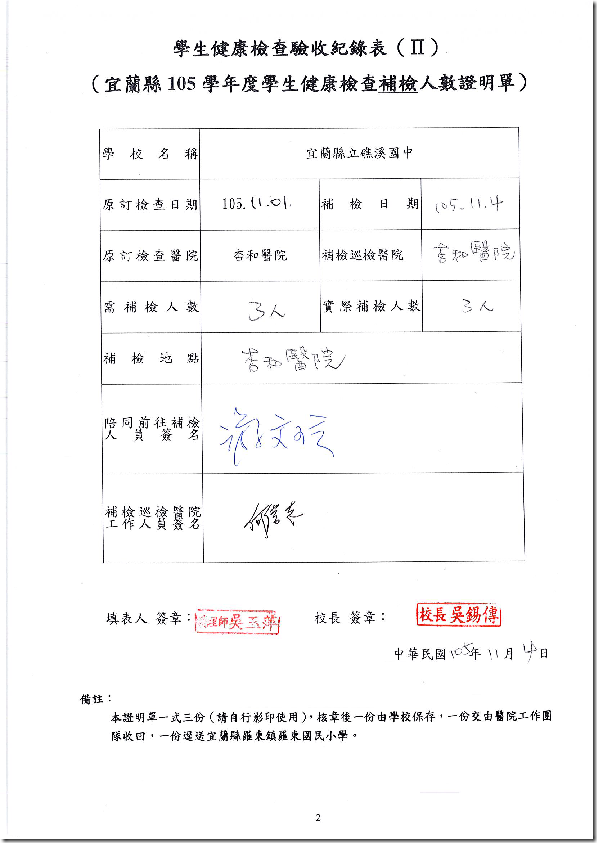 學生健康檢查驗收紀錄表（II）
（宜蘭縣 105 學年度學生健康檢查補檢人數證明單）
學校名稱 宜蘭縣立礁溪國中
原訂檢查日期 105.11.01. 補檢日期 105.11.4
原訂檢查醫院 杏和醫院 補檢巡檢醫院 杏和醫院
需補檢人數 3人 實際補檢人數 3人
補檢地點 杏和醫院
陪同前往補檢
人員簽名
補檢巡檢醫院
工作人員簽名
填表人 簽章： 護理師吳玉萍 校長 簽章： 校長吳錫傳
中華民國105年11月4日
備註：
本證明單一式三份（請自行影印使用），核章後一份由學校保存，一份交由醫院工作團
隊收回，一份逕送宜蘭縣羅東鎮羅東國民小學。
2